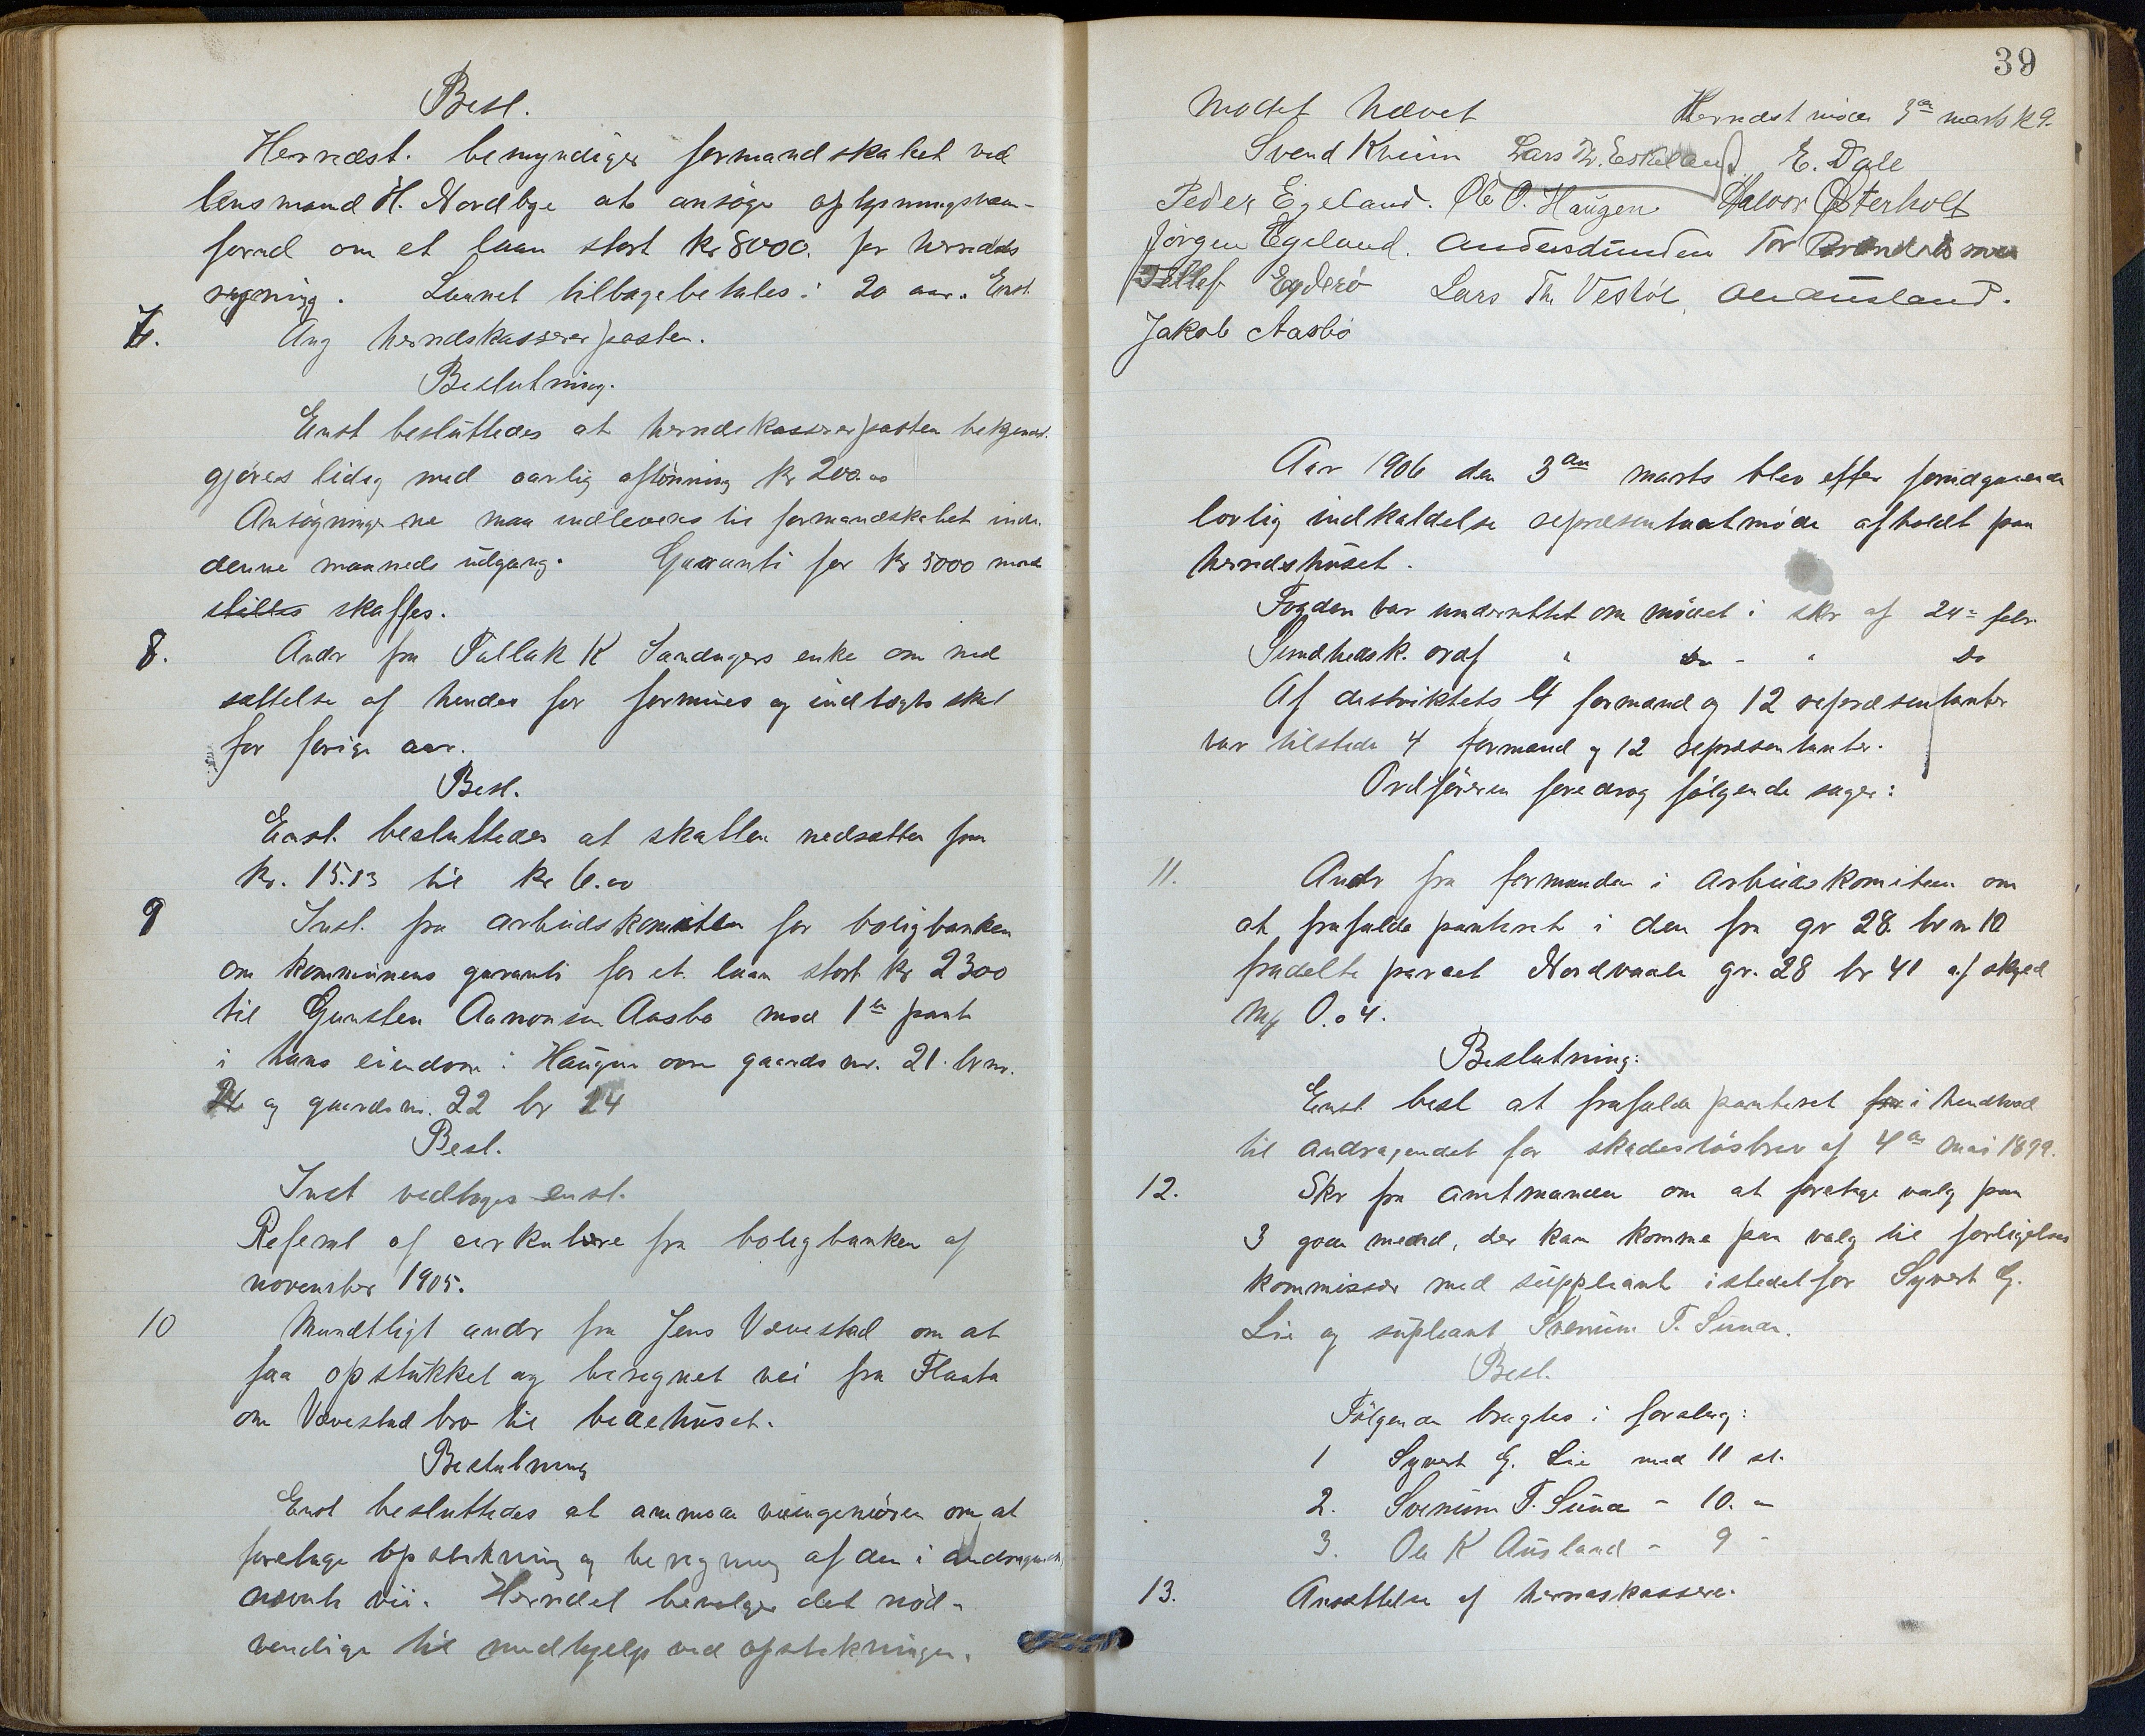 Besl.
Herredst. bemyndiger formandskabet ved
lensmand H. Nordbye at ansøge oplysningsvæn-
forud om et laan stort kr 8000. for herreds
regning. Laanet tilbagebetales i 20 aar. Enst.
7. Ang herredskassererposten.
Beslutning.
Enst besluttedes at herredskassererposten bekjendt.
gjøres ledig med aarlig aflønning kr 200.00
Ansøgningerne maa indleveres til formandskabet inden
denne maaneds udgang. Garanti for kr 5000 maa
stilles skaffes.
8. Andr fra Tallak K Sandagers enke om ned
sættelse af hendes for formues og indtægts skat
for forige aar.
Besl.
Enst. besluttedes at skatten nedsættes fra
kr. 15.13 til kr 6.00
9 Inst. fra arbeidskomiteen for boligbanken
om kommunens garanti for et laan stort kr 2300
til Gunsten Aanonsen Aasbø mod 1ste pant
i hans eiendom: Haugen øvre gaards nr. 21. br nr.
24 og gaards nr. 22 br 14
Besl.
Inst vedtages enst.
Referat af cirkulære fra boligbanken af
november 1905.
10 Mundtligt andr fra Jens Vævestad om at
faa opstukket og beregnet vei fra Flaata
om Vævestad bro til bedehuset.
Beslutning
Enst besluttedes at anmode veiingeniøren om at
foretage opstikning og beregning af den i andragendet
nævnte vei. Herredet bevilger det nød-
vendige til medhjelp ved opstikningen.
39
Mødet hævet Herredst møde 3die marts k 9.
Svend Kheim Lars Th. Eskeland E. Dale
Peder Egeland. Ole O. Haugen Halvor Østerholt
Jørgen Egeland. Anders Lunden Tor
Tellef Egderø Lars Th. Vestøl, Ole Ausland.
Jakob Aasbø
Aar 1906 den 3die marts blev efter forudgaaende
lovlig indkaldelse repræsentantmøde afholdt paa
herredshuset.
Fogden var underrettet om mødet i skr af 24- febr.
Sundhedsk. ordf " Do - " Do
Af distriktets 4 formænd og 12 repræsentanter
var tilstede 4 formænd og 12 repræsentanter.
Ordføreren foredrog følgende sager:
11. Andr fra formanden i arbeidskomiteen om
at frafalde panteret i den fra gr 28 br nr 10
fradelte parcel Nordvaale gr. 28 br 41 af skyld
Mk 0.04.
Beslutning:
Enst besl at frafalde panteret fra i henhold
til andragendet for skadesløsbrev af 4de mai 1899.
12. Skr fra amtmanden om at foretage valg paa
3 gode mænd, der kan komme paa valg til forligelses
kommissær med suppleant istedetfor Syvert G.
Lie og supleant Svenum T. Sunde.
Besl.
Følgende bragtes i forslag:
1 Syvert G. Lie med 11 st.
2. Svenum T. Sunde - 10. -
3. Ole K Ausland - 9 -
13. Ansættelse af herredskasserer.